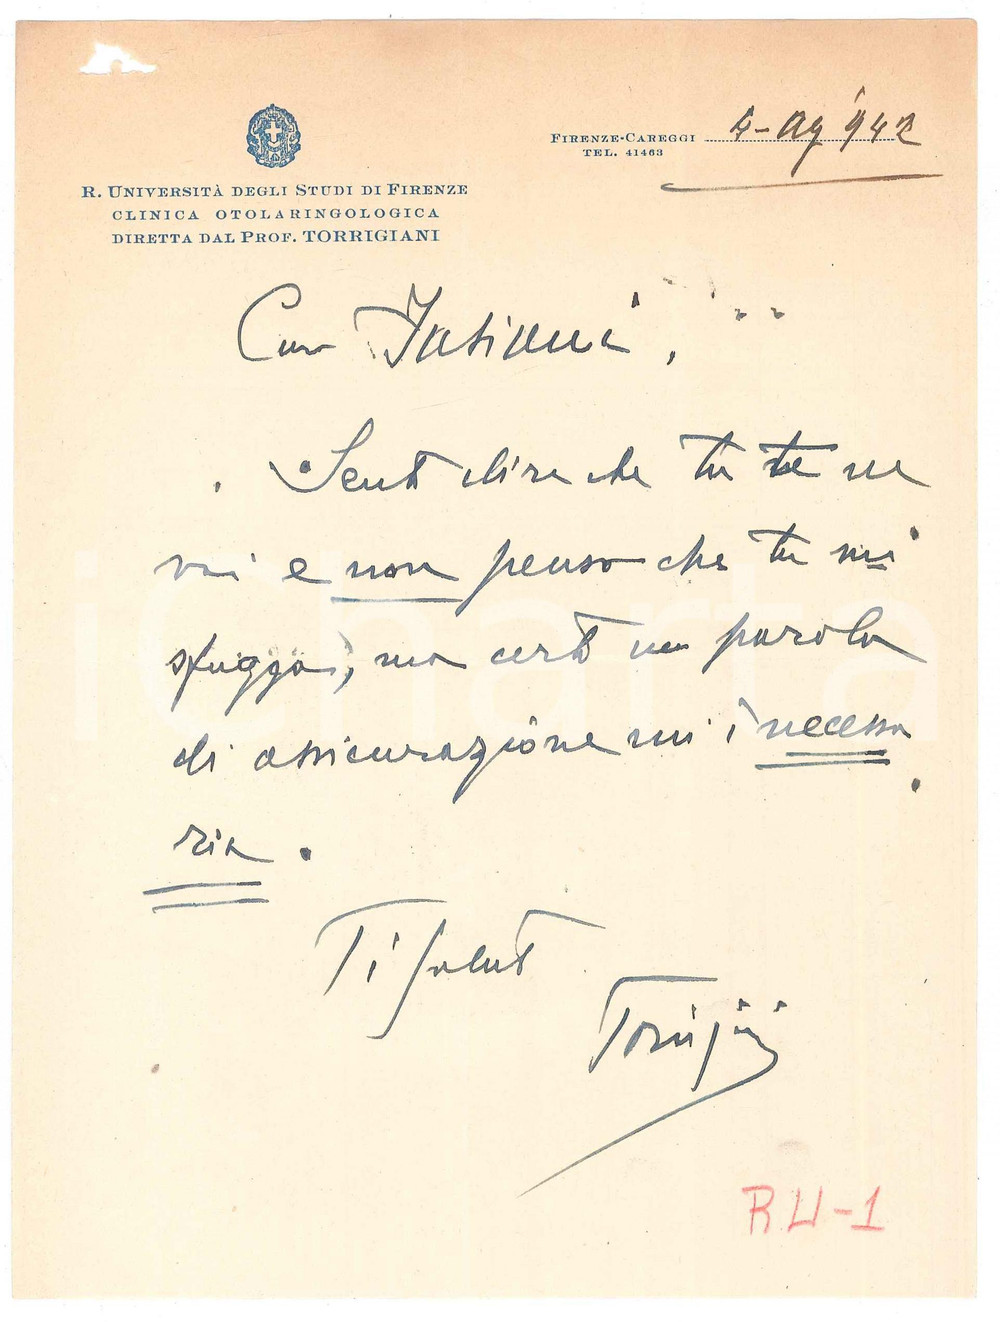 R. Università degli Studi di Firenze
Clinica Otolaringologica
diretta dal Prof. Torrigiani
Firenze-Careggi 4-Ag 942
Tel. 41463
Caro Fasiani,
Sento dire che tu te ne
vai e non penso che tu mi
sfugga, ma certo una parola
di assicurazione mi è necessa
ria.
Ti saluto
Torrigiani
RU-1
iCharta